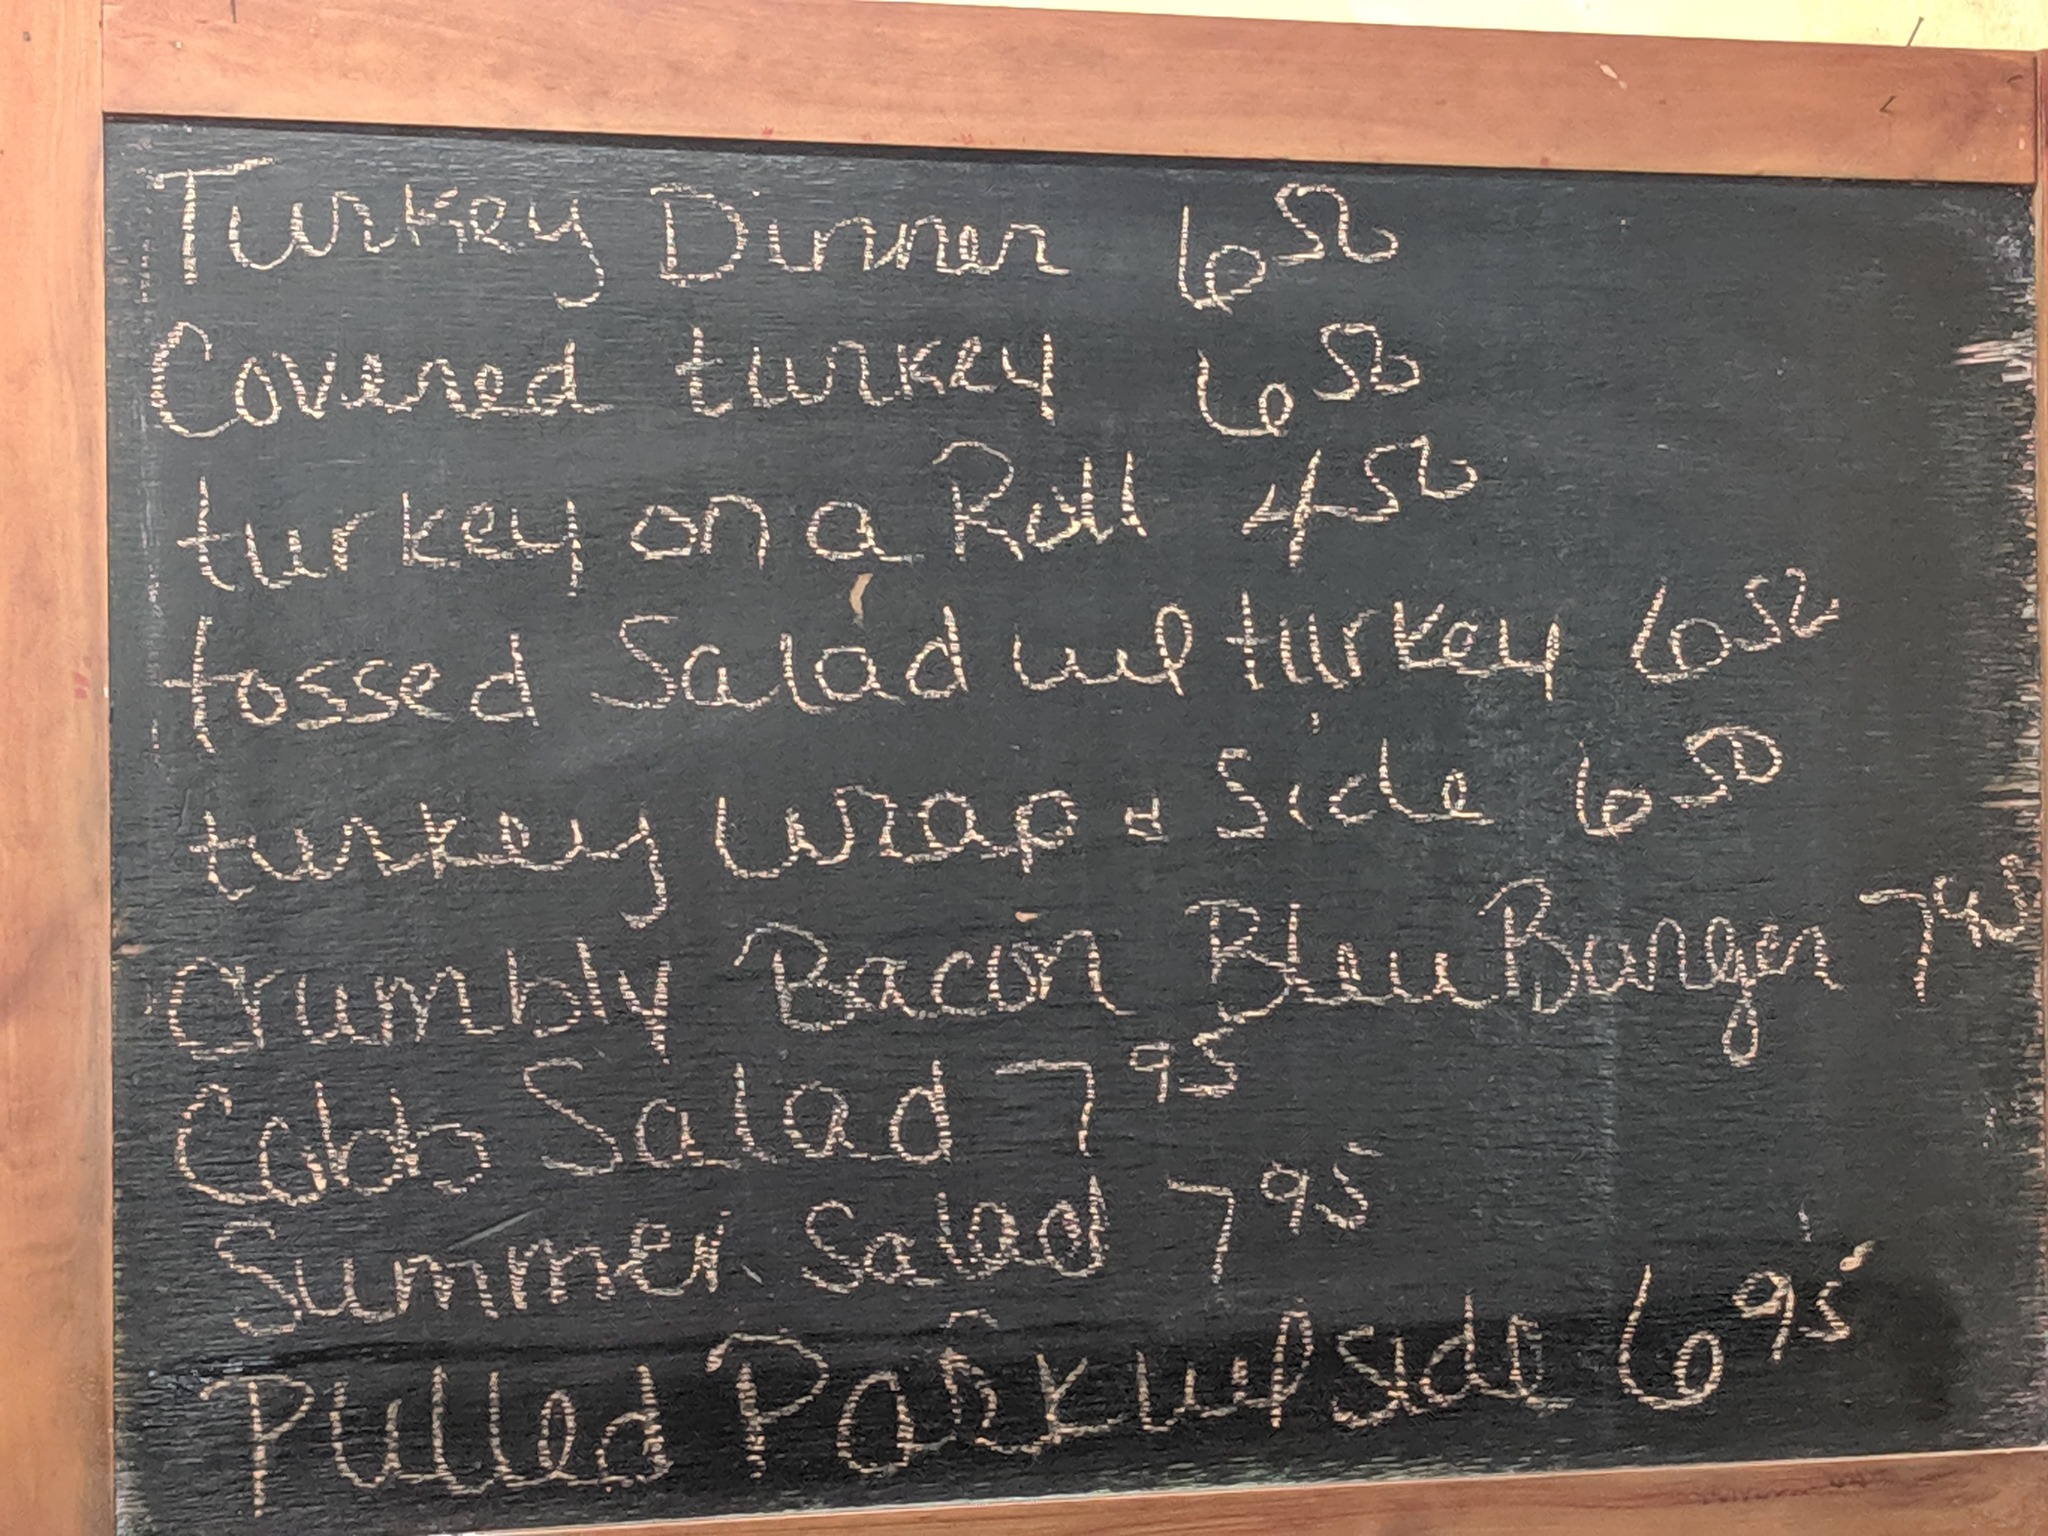 Turkey Dinner 6 50
Covered turkey 6 50
turkey on a Roll 4 50
tossed Salad w/ turkey 6 50
turkey wrap & Side 6 50
Crumbly Bacon Bleu Burger 7 95
Cobb Salad 7 95
Summer Salad 7 95
Pulled Pork w/ side 6 95